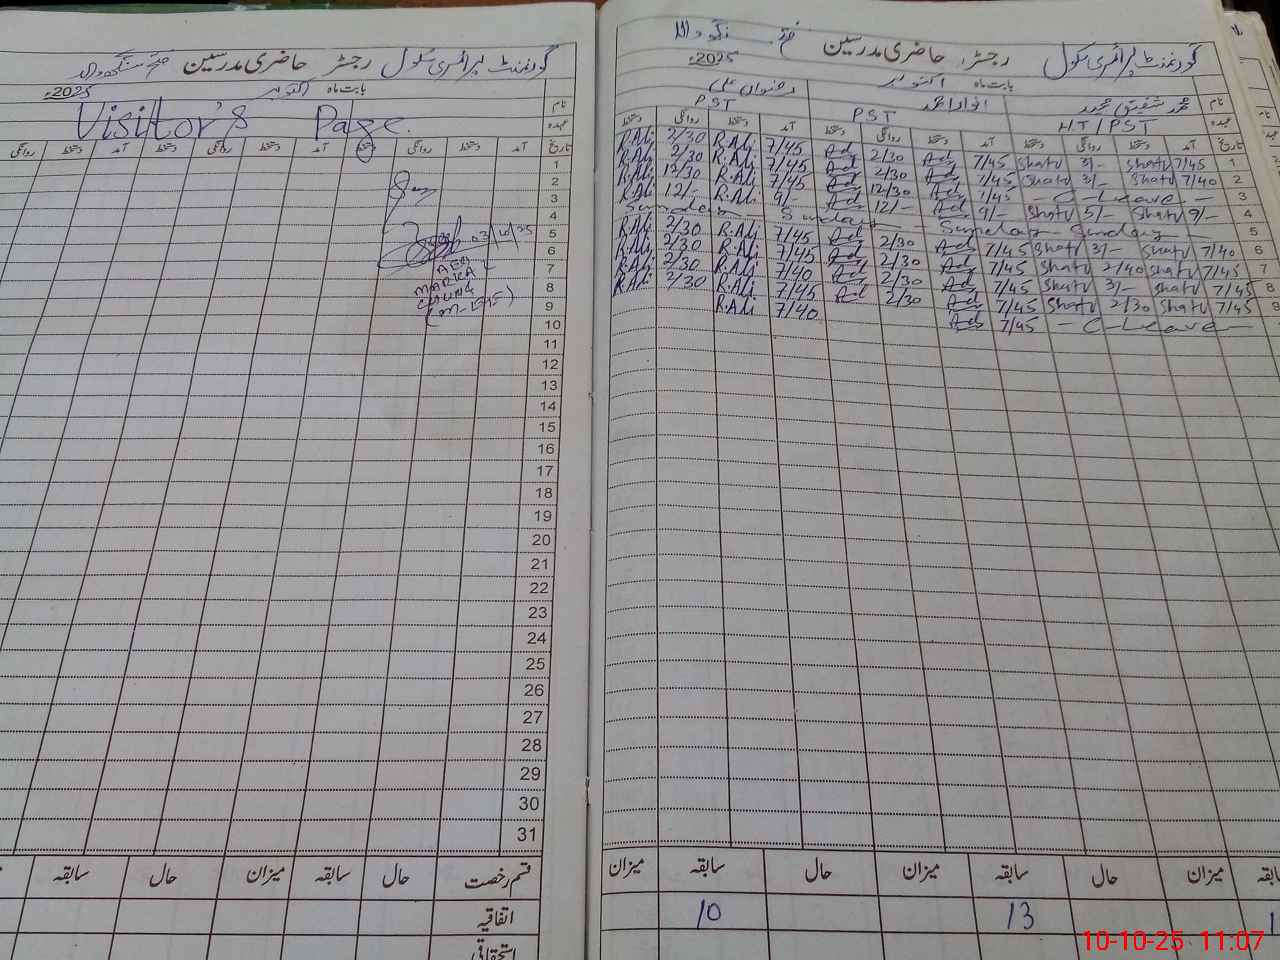 گورنمنٹ پرائمری سکول رجسٹر حاضری مدرسین
بابت ماہ اکتوبر 2025ء
Visitor's Page.
نام
عہدہ
تاریخ آمد دستخط روانگی دستخط آمد دستخط روانگی دستخط آمد دستخط روانگی
1
2
3
4
5
6
7
8
9
10
11
12
13
14
15
16
17
18
19
20
21
22
23
24
25
26
27
28
29
30
31
AEO
MARKAZ
قسم رخصت حال سابقہ میزان حال سابقہ
اتفاقیہ
استحقاقی
گورنمنٹ پرائمری سکول رجسٹر حاضری مدرسین
بابت ماہ اکتوبر 2025ء
نام محمد شفیق مجید رضوان علی
عہدہ HT/PST PST PST
تاریخ آمد دستخط روانگی دستخط آمد دستخط روانگی دستخط آمد دستخط روانگی دستخط
R.Ali 2/30 R.Ali 7/45 Ad 2/30 Ad 7/45 Shafu 3/- Shafu 7/45 1
R.Ali 2/30 R.Ali 7/45 Ad 2/30 Ad 7/45 Shafu 3/- Shafu 7/40 2
R.Ali 12/30 R.Ali 7/45 Ad 12/30 Ad 7/45 - C-Leave - 3
R.Ali 12/- R.Ali 9/- Ad 12/- Ad 9/- Shafu 5/- Shafu 9/- 4
Sunday - Sunday - Sunday - Sunday - 5
R.Ali 2/30 R.Ali 7/45 Ad 2/30 Ad 7/45 Shafu 3/- Shafu 7/40 6
R.Ali 2/30 R.Ali 7/45 Ad 2/30 Ad 7/45 Shafu 2/40 Shafu 7/45 7
R.Ali 2/30 R.Ali 7/40 Ad 2/30 Ad 7/45 Shafu 3/- Shafu 7/45 8
R.Ali 2/30 R.Ali 7/45 Ad 2/30 Ad 7/45 Shafu 2/30 Shafu 7/45
R.Ali 7/40 Ad 7/45 - C-Leave -
میزان سابقہ حال میزان سابقہ حال میزان
10 13
10-10-25 11:07